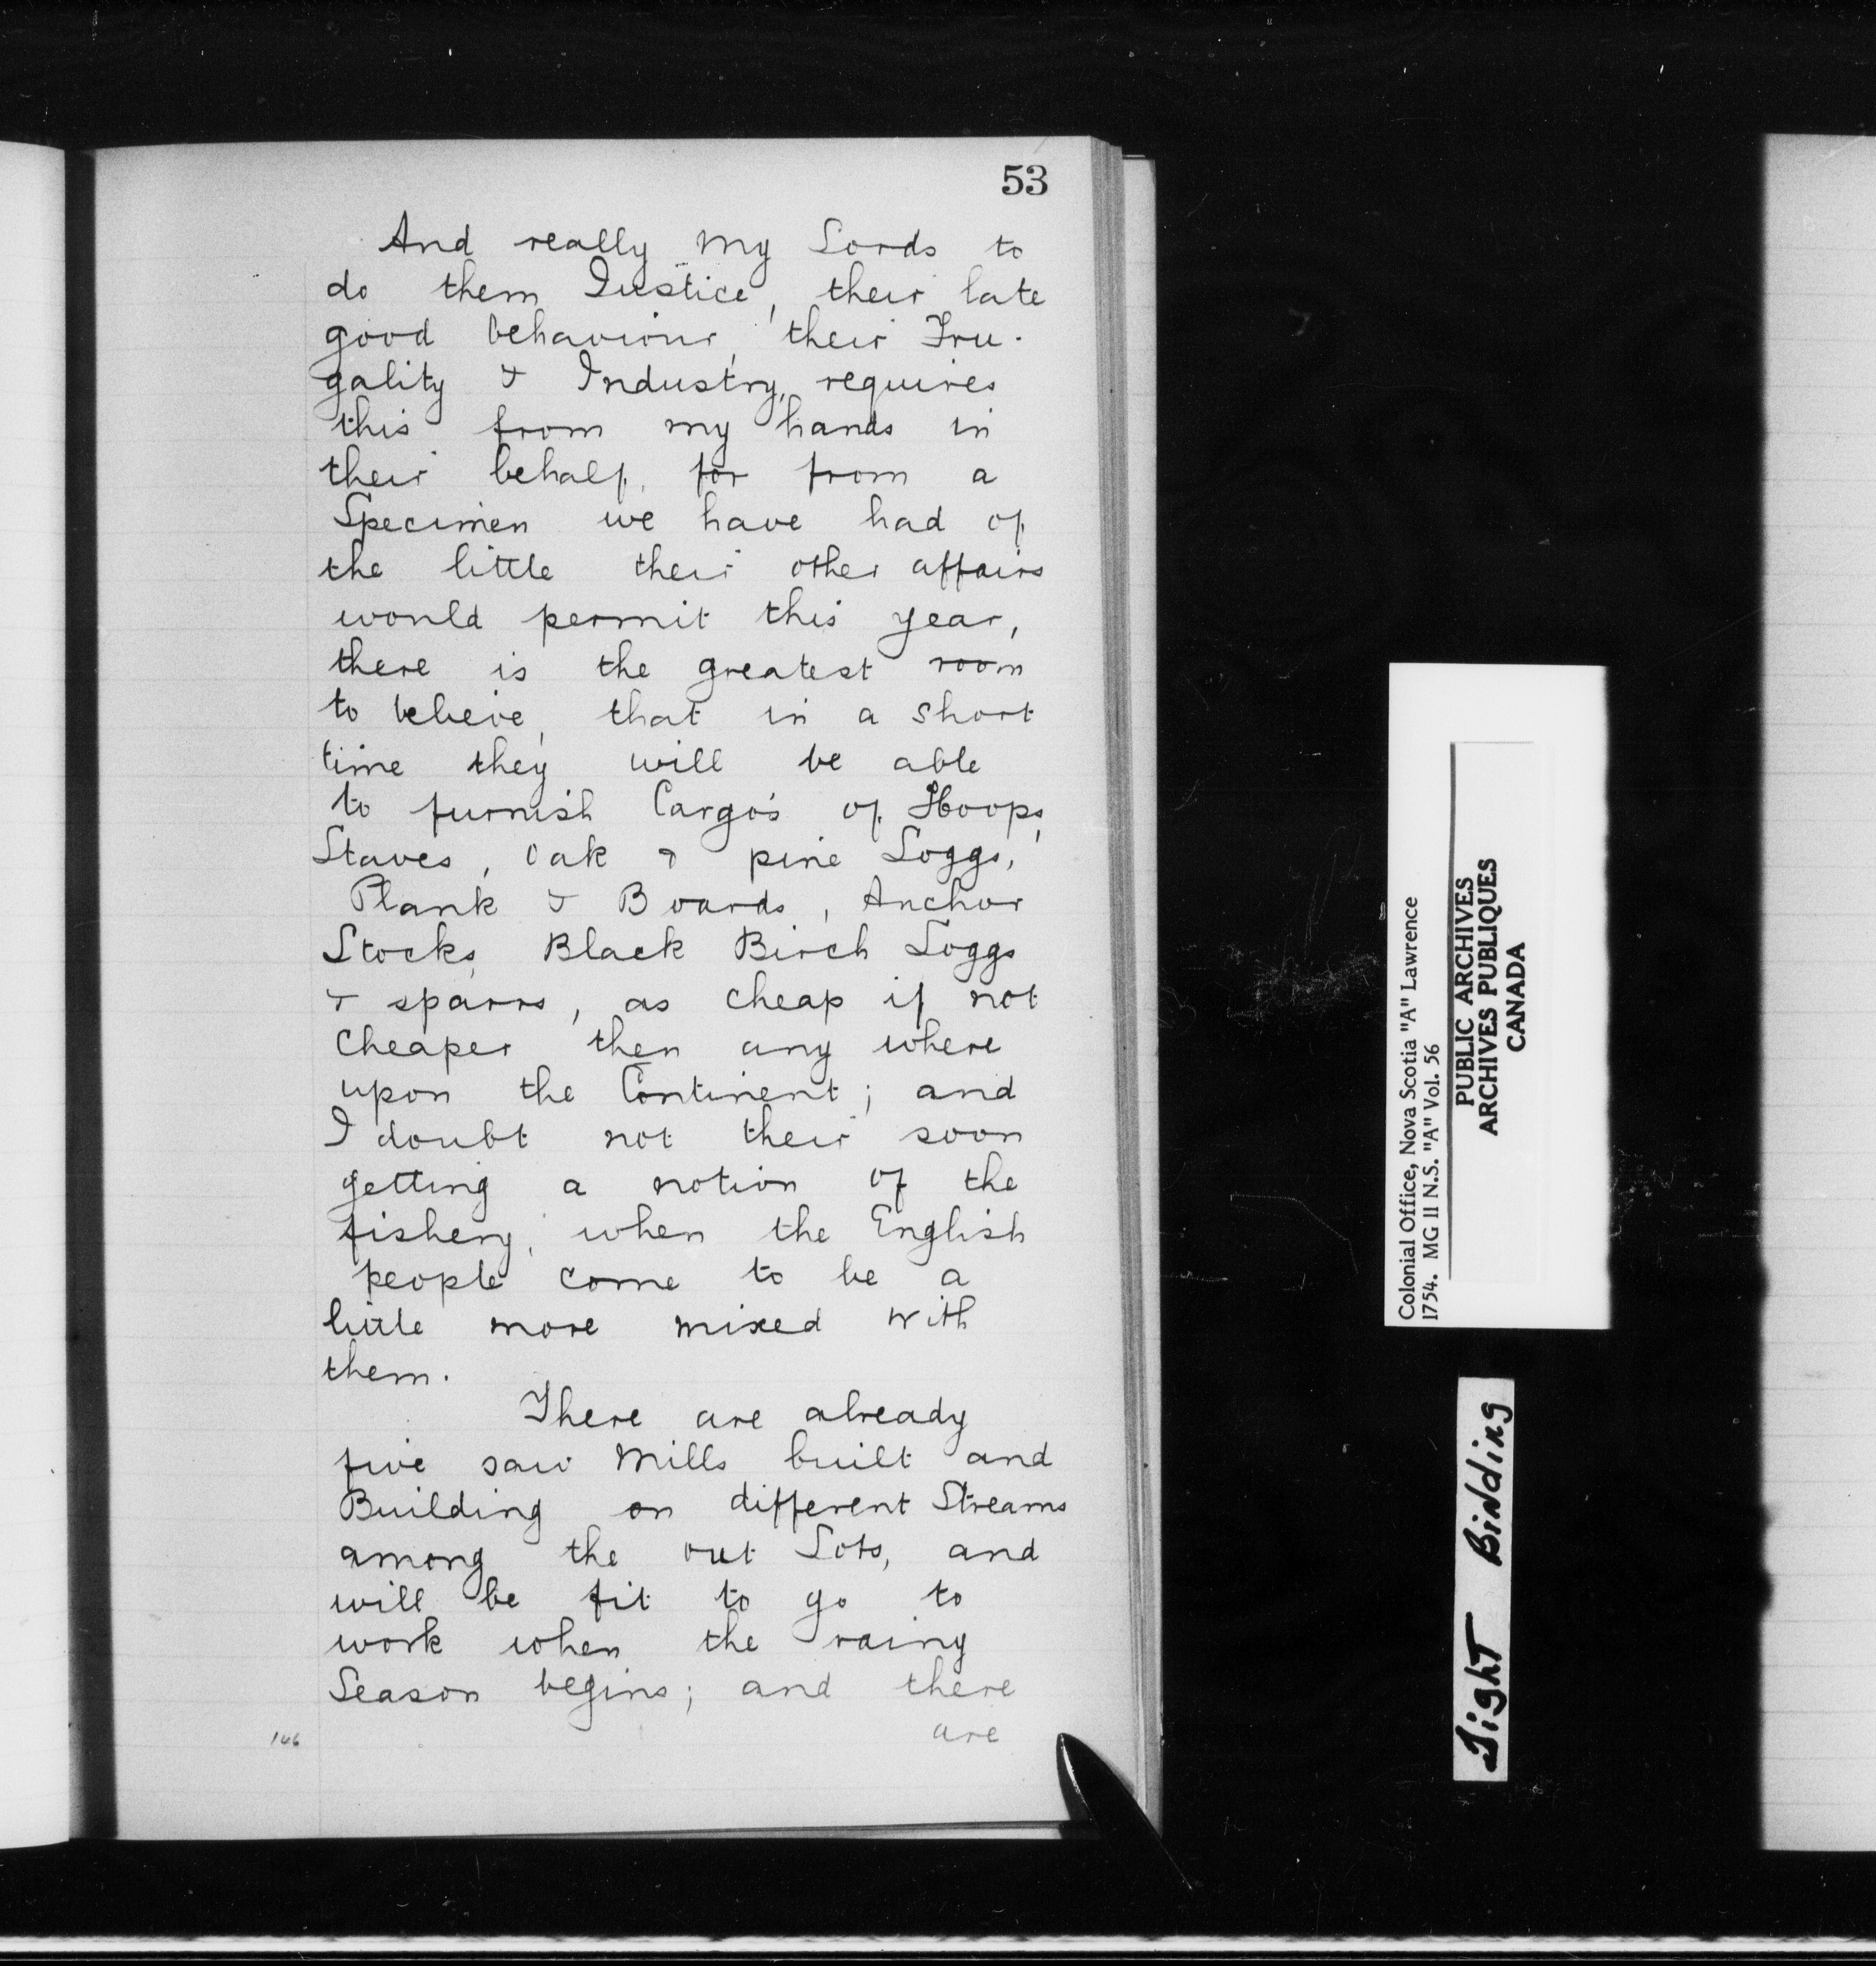 53
And really my Lords to
do them Justice, their late
good behaviour, their Fru-
gality & Industry, requires
this from my hands in
their behalf, for from a
Specimen we have had of
the little their other affairs
would permit this year,
there is the greatest room
to believe, that in a short
time they will be able
to furnish Cargo's of Hoops,
Staves, Oak & pine Loggs,
Plank & Boards, Anchor
Stocks, Black Birch Loggs
& sparrs, as cheap if not
Cheaper then any where
upon the Continent; and
I doubt not their soon
getting a notion of the
fishery, when the English
people come to be a
little more mixed with
them.
There are already
five saw Mills built and
Building on different Streams
among the out Lots, and
will be fit to go to
work when the rainy
Season begins; and there
are
146
Colonial Office, Nova Scotia "A" Lawrence
1754. MG 11 N.S. "A" Vol. 56
PUBLIC ARCHIVES
ARCHIVES PUBLIQUES
CANADA
Tight Binding